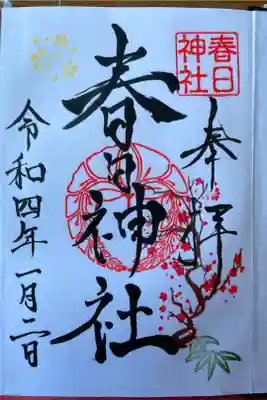 春日
神社
奉拝
春日神社
令和四年一月二日